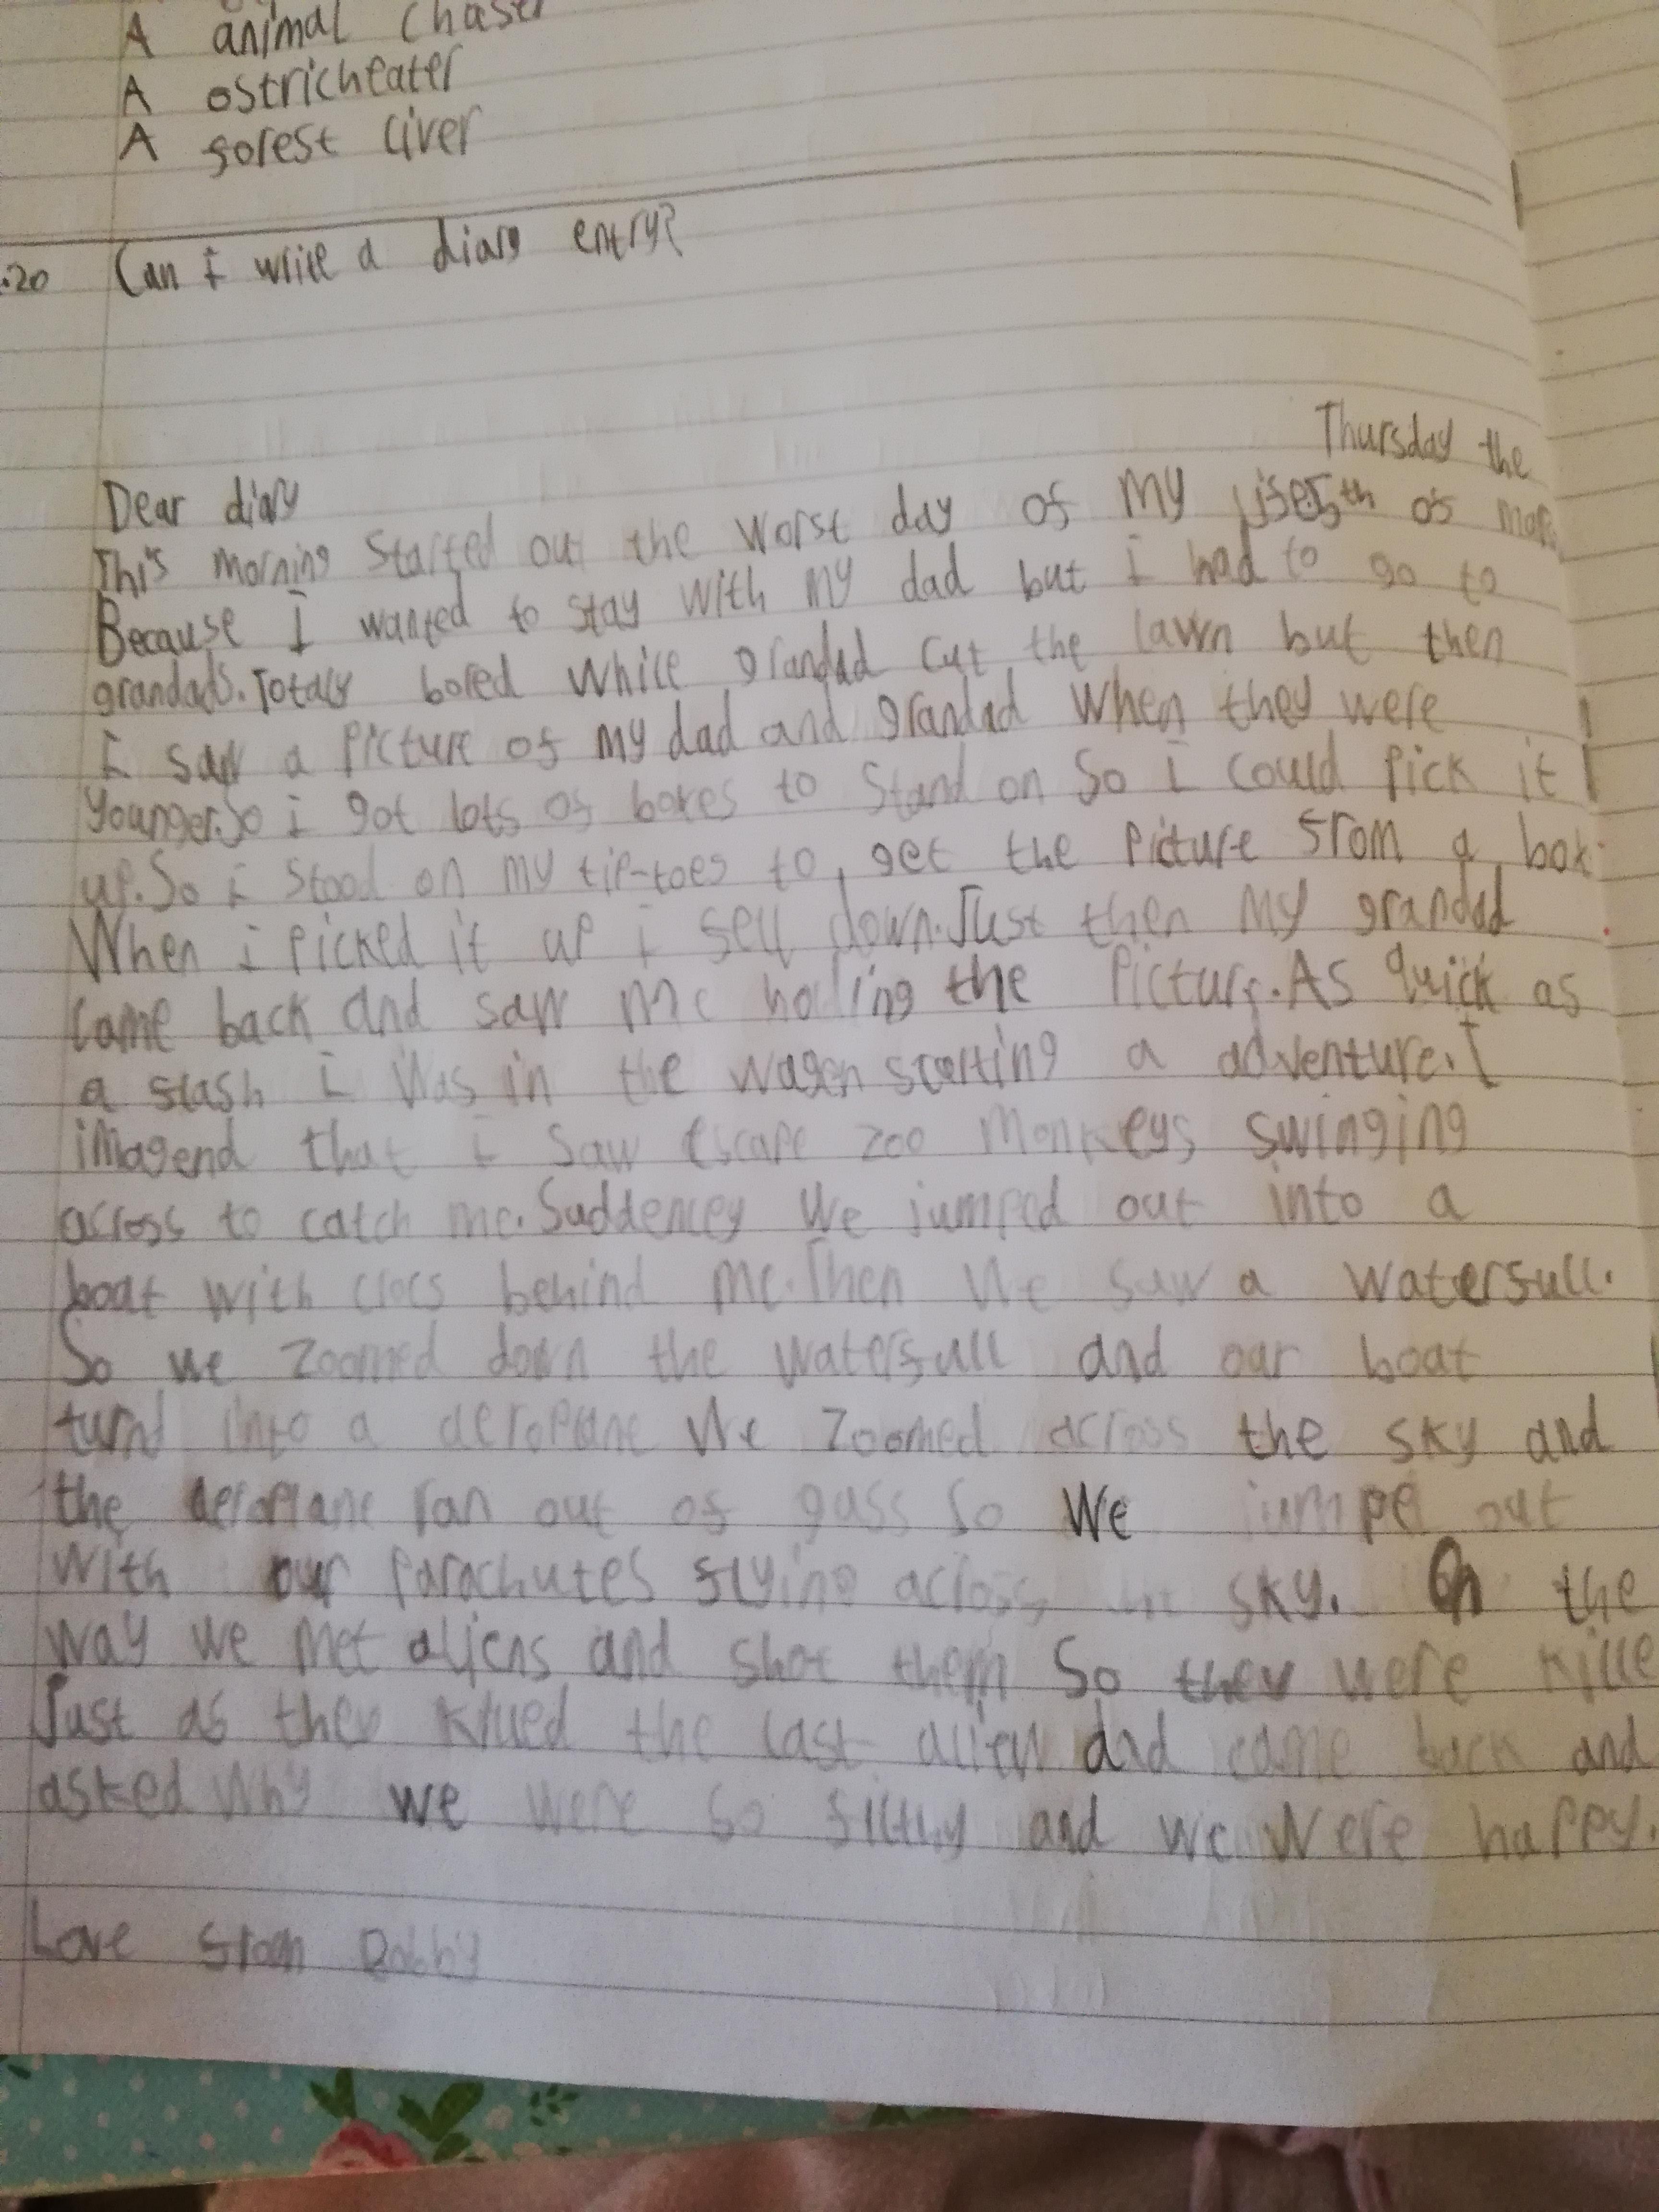 A animal chaser
A ostricheater
A forest liver
.20 Can I write a diary entry?
Thursday the
5th of
Dear diary
This morning started out the worst day of my life
Because I wanted to stay with my dad but i had to go to
grandads. Totaly bored while grandad cut the lawn but then
i saw a picture of my dad and grandad when they were
younger. So i got lots of boxes to stand on so i could pick it
up. So i stood on my tip-toes to get the picture from a box
When i picked it up i fell down. Just then my grandad
came back and saw me holing the picture. As quick as
a flash i was in the wagen starting a adventure. I
imagend that i saw escape zoo monkeys swinging
across to catch me. Suddenley we jumped out into a
boat with clocs behind me. Then we saw a waterfull.
So we zoomed down the waterfull and our boat
turnd into a aeroplane we zoomed across the sky and
the aeroplane ran out of gass so we jumpe out
with our parachutes flying across the sky. On the
way we met aliens and shot them so they were kille
Just as they killed the last alien dad came back and
asked why we were so filthy and we were happy.
Love from Bobby